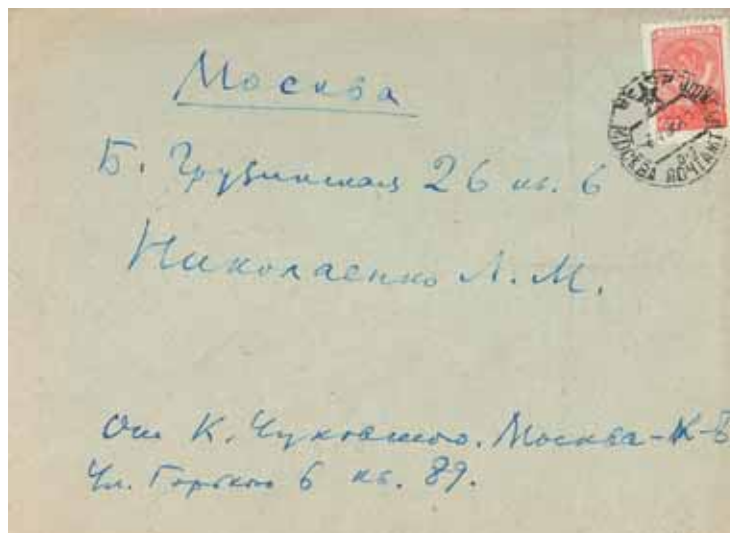 Москва
Б. Грузинская 26 кв. 6
Николаенко Л. М.
От К. Чуковского. Москва-К-
Ул. Горького 6 кв. 89.
МОСКВА ПОЧТАМТ